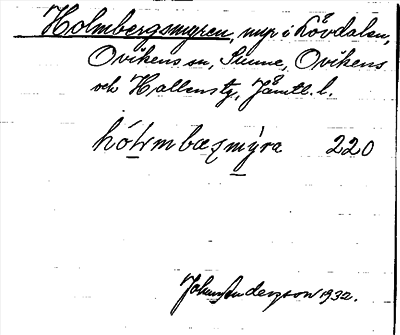 Holmbergsmyren, myr i Kövdalen,
Ovikens sn, Sunne, Ovikens
och Hallens tg, Jämtl. l.
hólmbæzmýra 220
Johan Anderzson 1932.